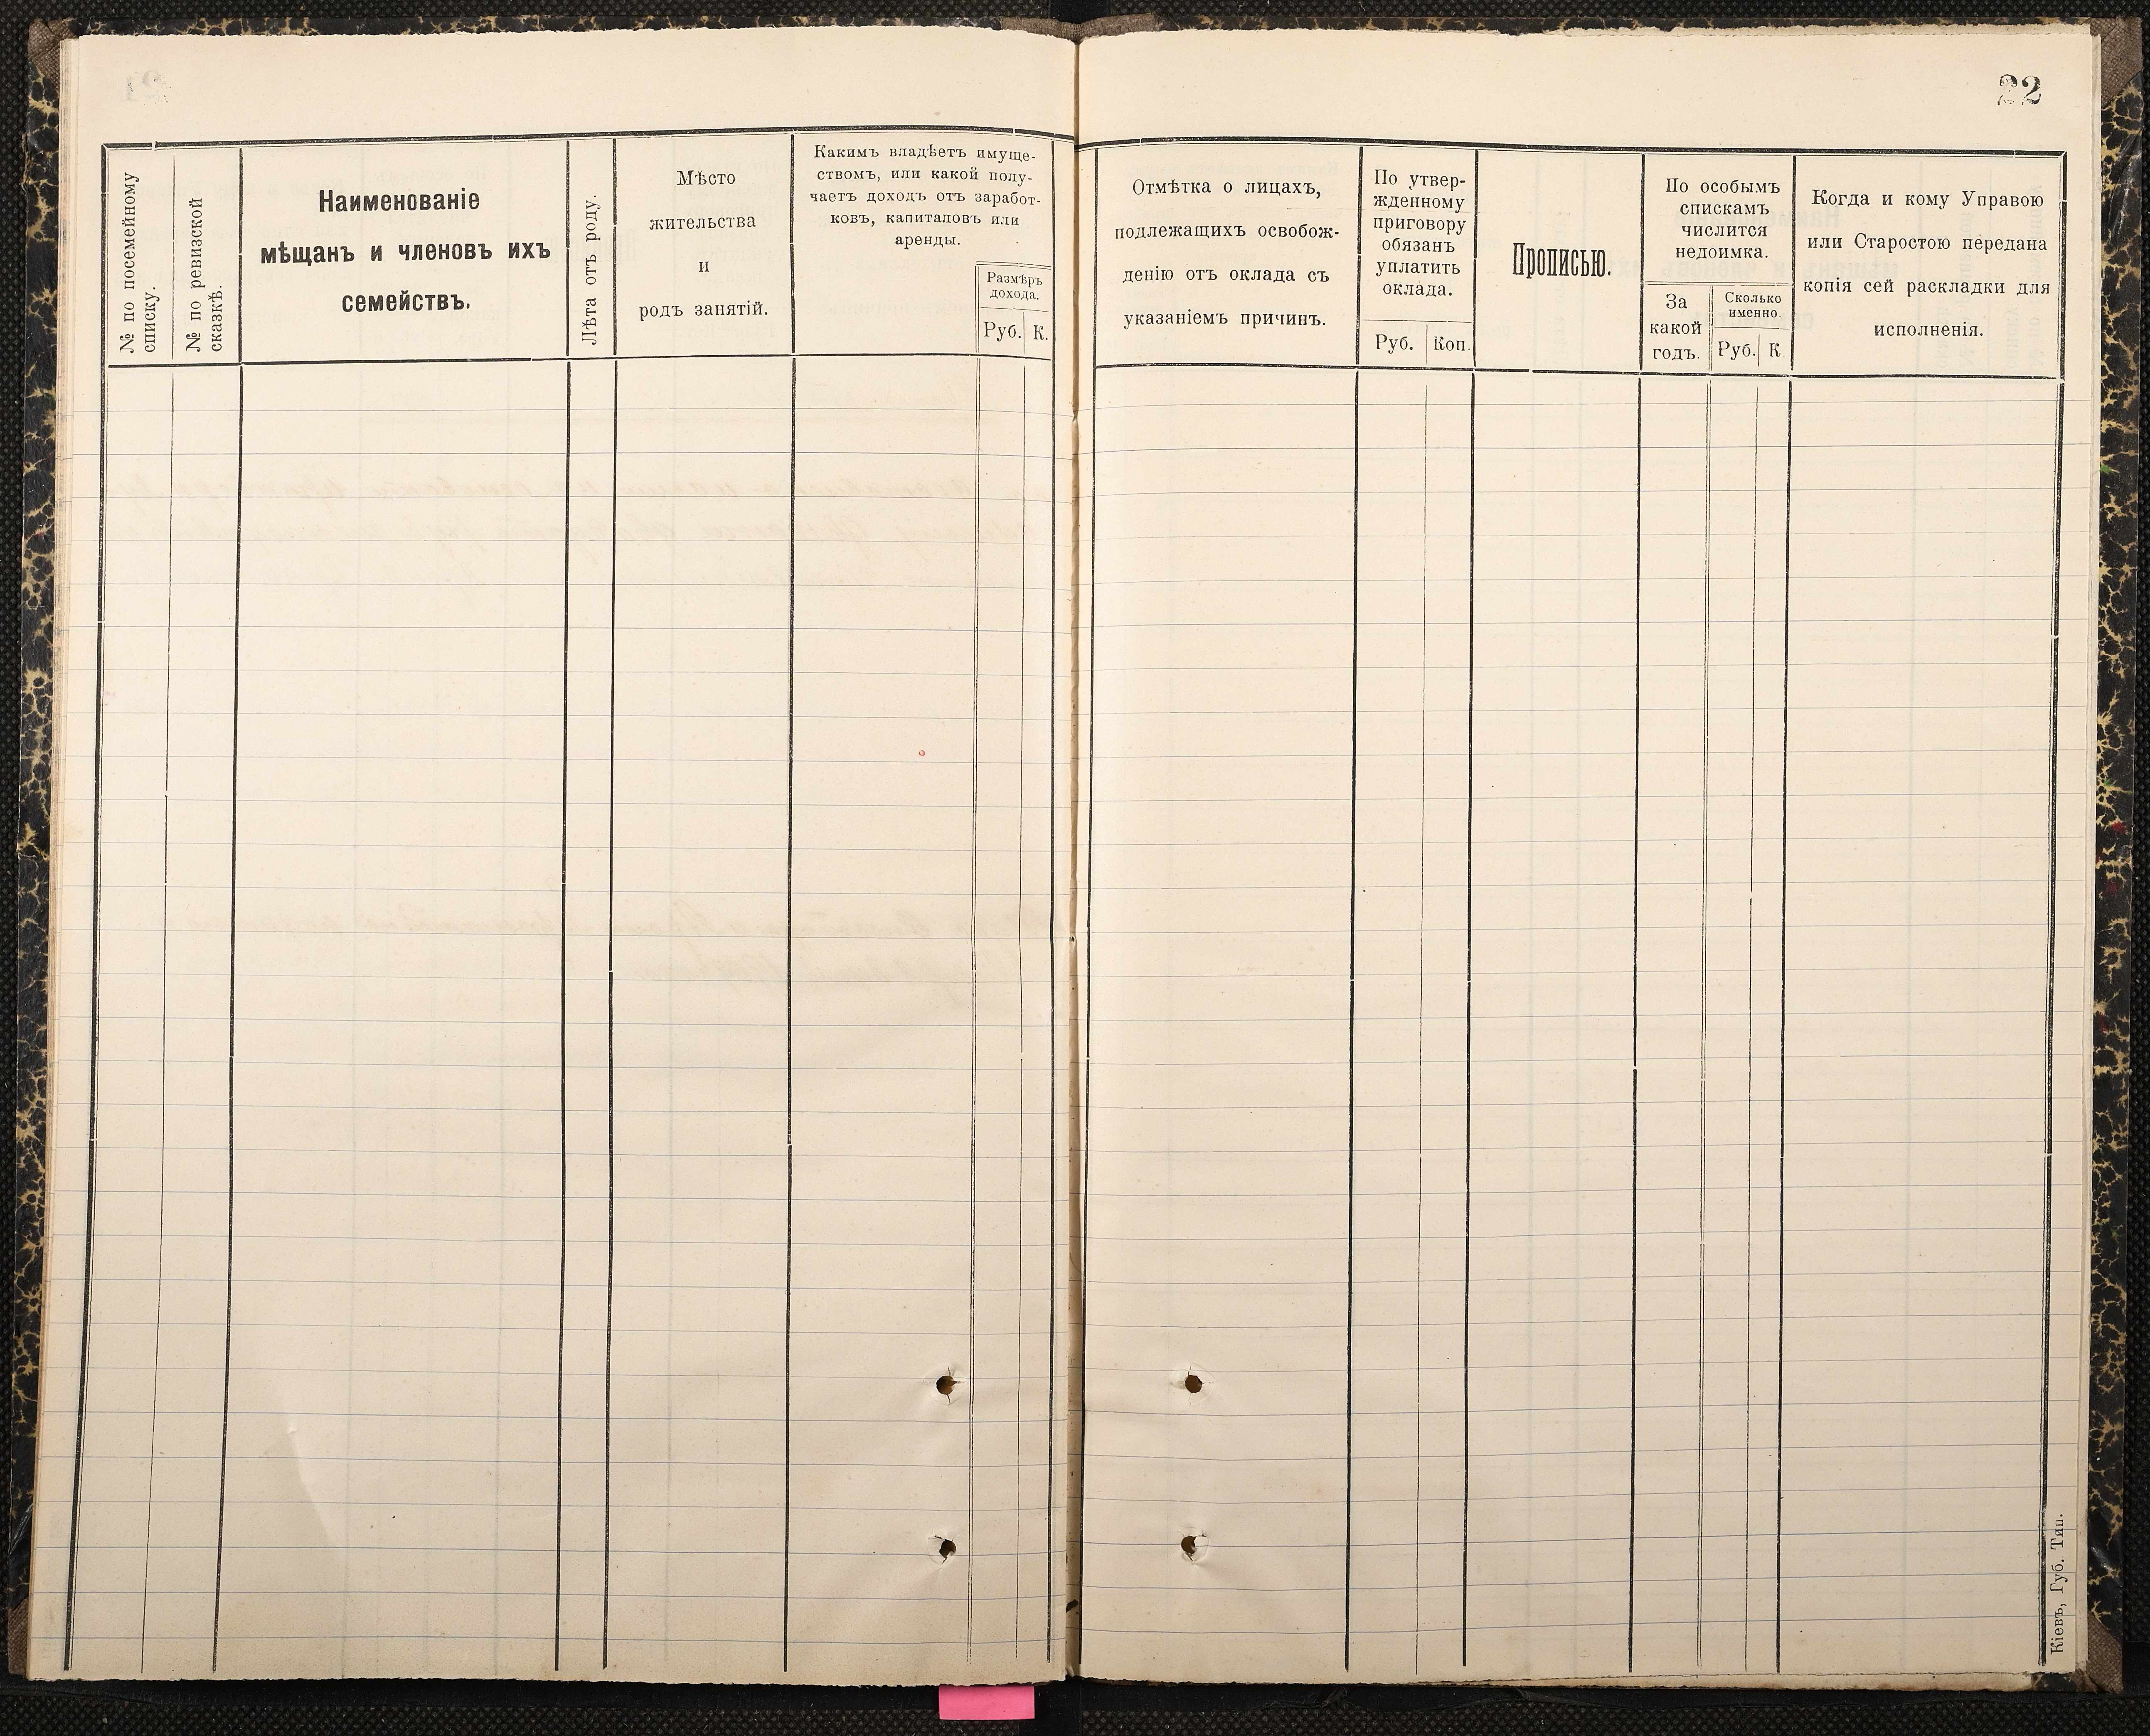 22
№ по посемейному
списку.
№ по ревизской
сказкѣ.
Наименованіе
мѣщанъ и членовъ ихъ
семействъ.
Лѣта отъ роду.
Мѣсто
жительства
и
родъ занятій.
Какимъ владѣетъ имуще-
ствомъ, или какой полу-
чаетъ доходъ отъ заработ-
ковъ, капиталовъ или
аренды.
Размѣръ
дохода.
Руб. К.
Отмѣтка о лицахъ,
подлежащихъ освобож-
денію отъ оклада съ
указаніемъ причинъ.
По утвер-
жденному
приговору
обязанъ
уплатить
оклада.
Руб. Коп.
Прописью.
По особымъ
спискамъ
числится
недоимка.
За
какой
годъ.
Сколько
именно.
Руб. К
Когда и кому Управою
или Старостою передана
копія сей раскладки для
исполненія.
Кіевъ, Губ. Тип.